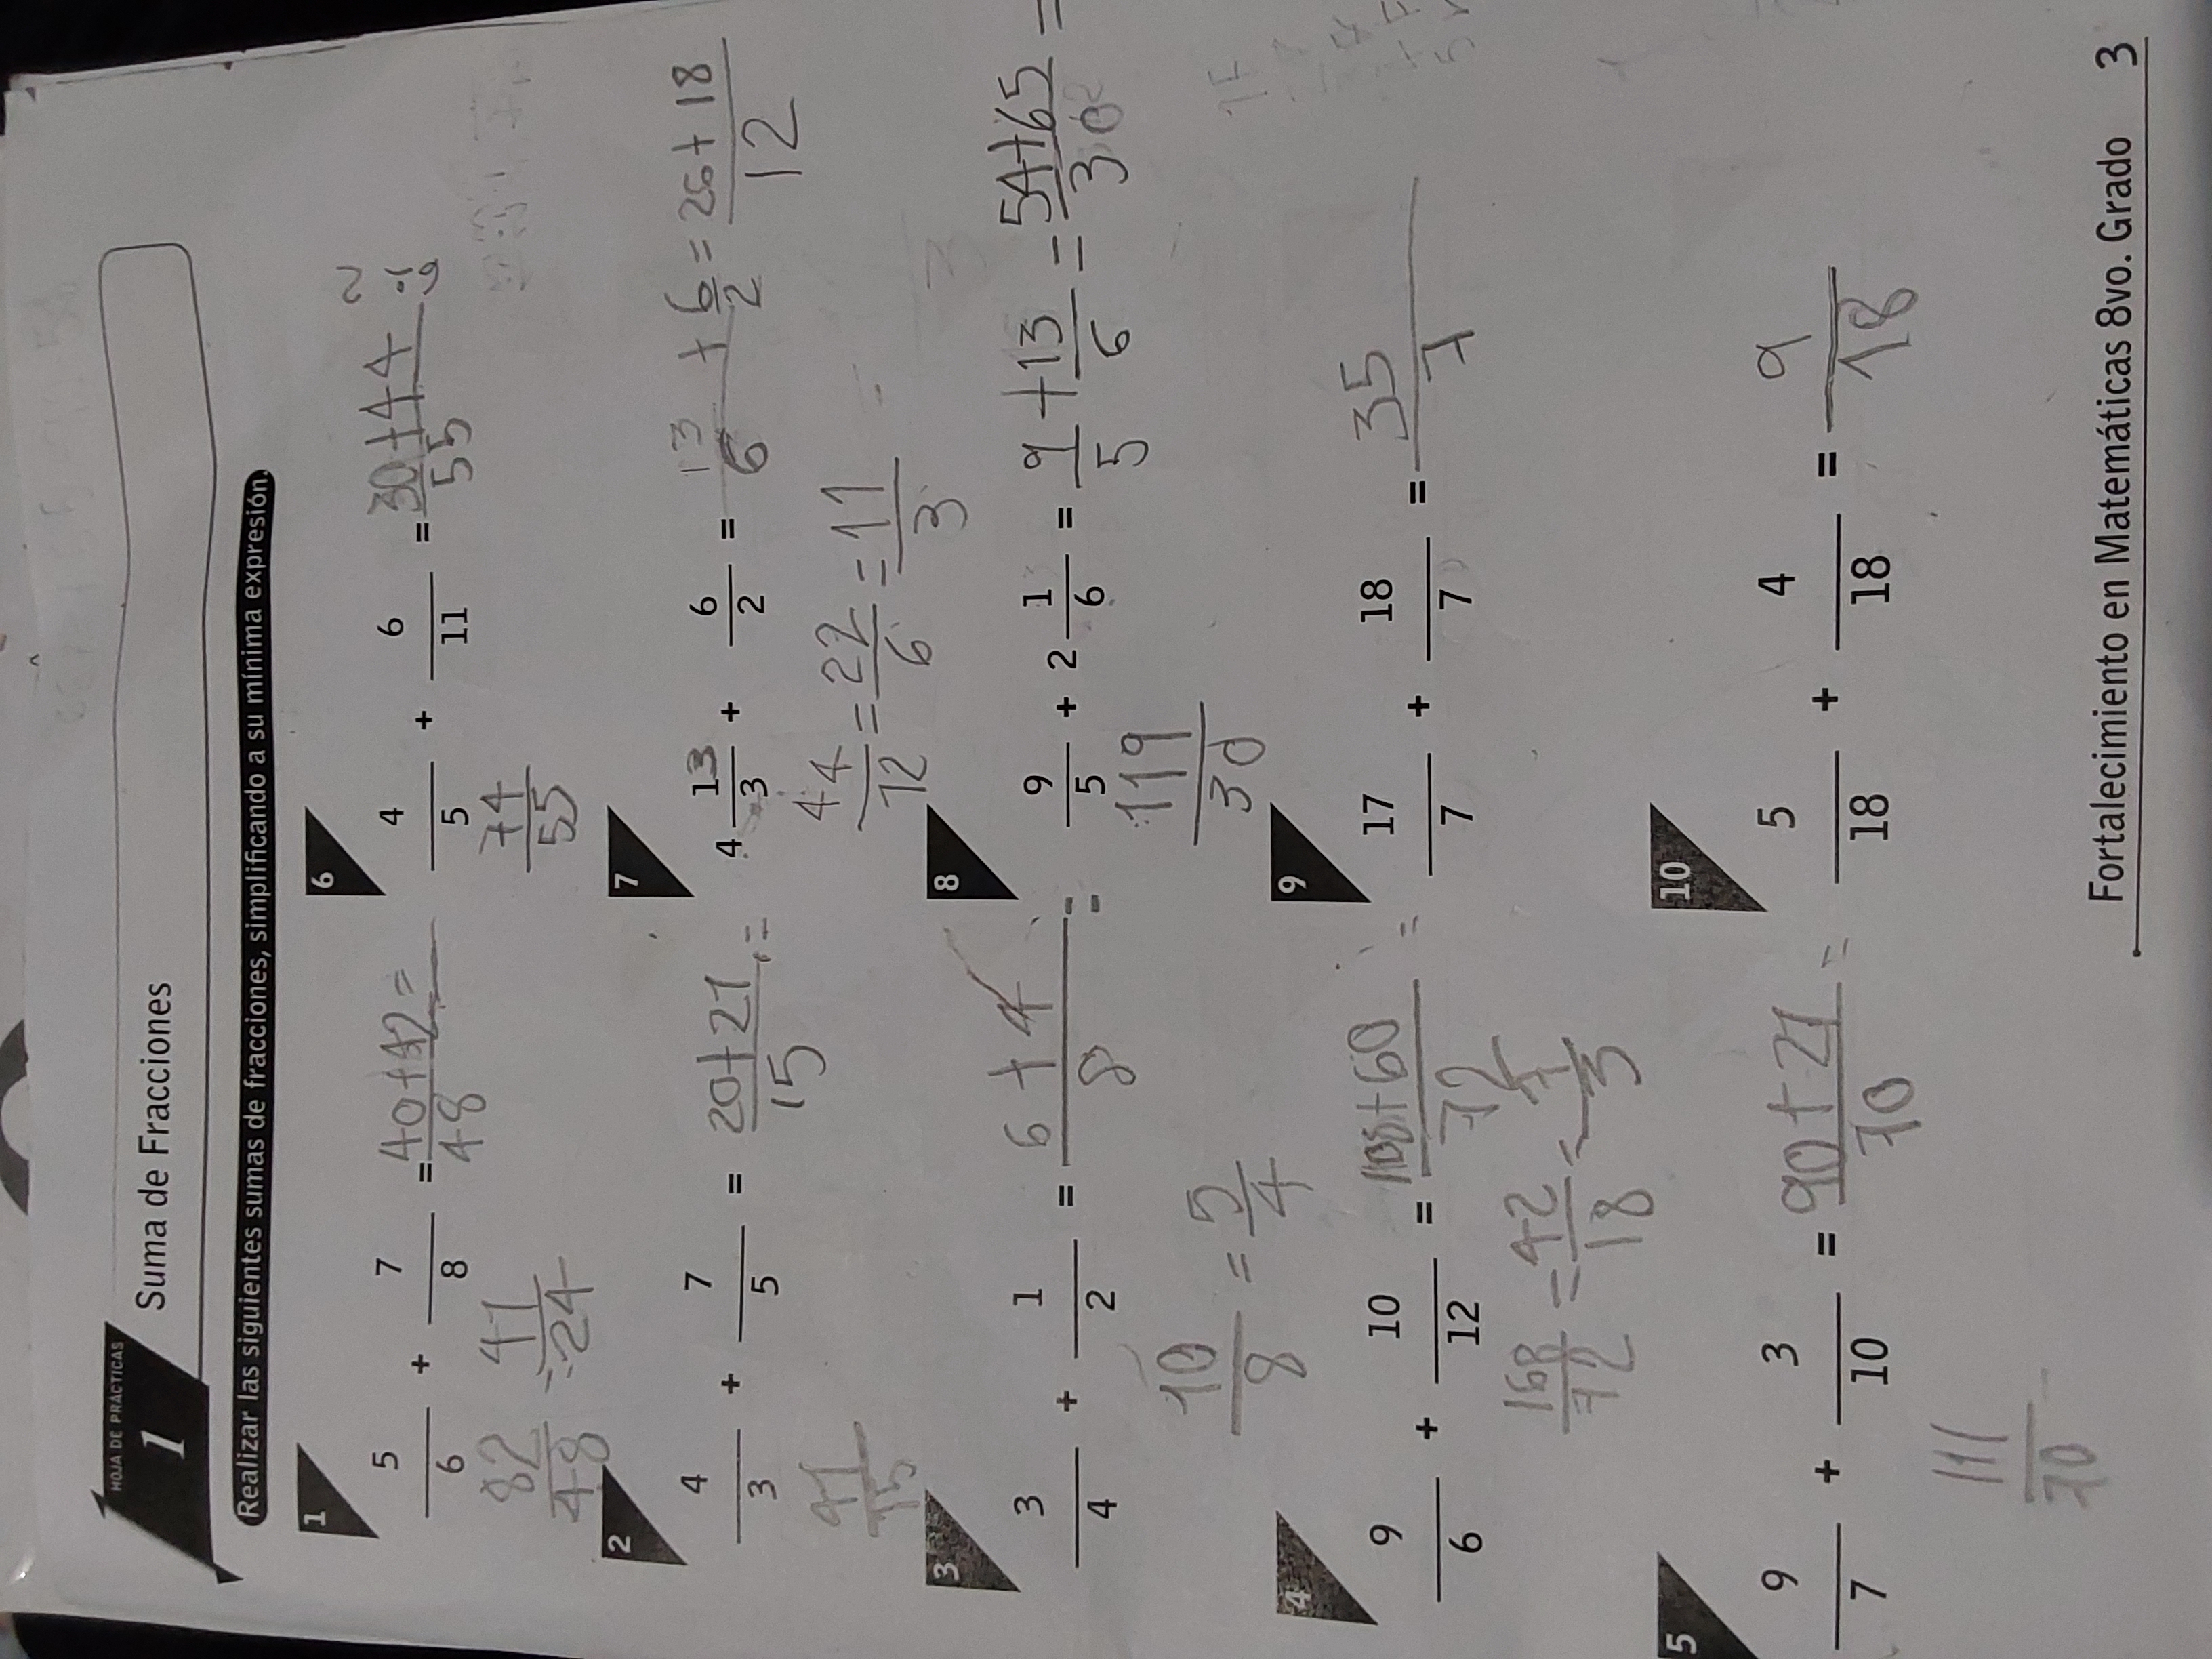 HOJA DE PRÁCTICAS
1
Suma de Fracciones
Realizar las siguientes sumas de fracciones, simplificando a su mínima expresión.
1
5/6 + 7/8 = 40+42/48 =
82/48 = 41/24
2
4/3 + 7/5 = 20+21/15 =
41/15
3
3/4 + 1/2 = 6+4/8 =
10/8 = 5/4
4
9/6 + 10/12 = 108+60/72 =
168/72 = 42/18 = 7/3
5
9/7 + 3/10 = 90+21/70 =
111/70
6
4/5 + 6/11 = 30+44/55
74/55
7
4 13/3 + 6/2 = 13/6 + 6/2 = 26+18/12
44/12 = 22/6 = 11/3
8
9/5 + 2 1/6 = 9/5 + 13/6 = 54+65/30 =
119/30
9
17/7 + 18/7 = 35/7
10
5/18 + 4/18 = 9/18
Fortalecimiento en Matemáticas 8vo. Grado 3